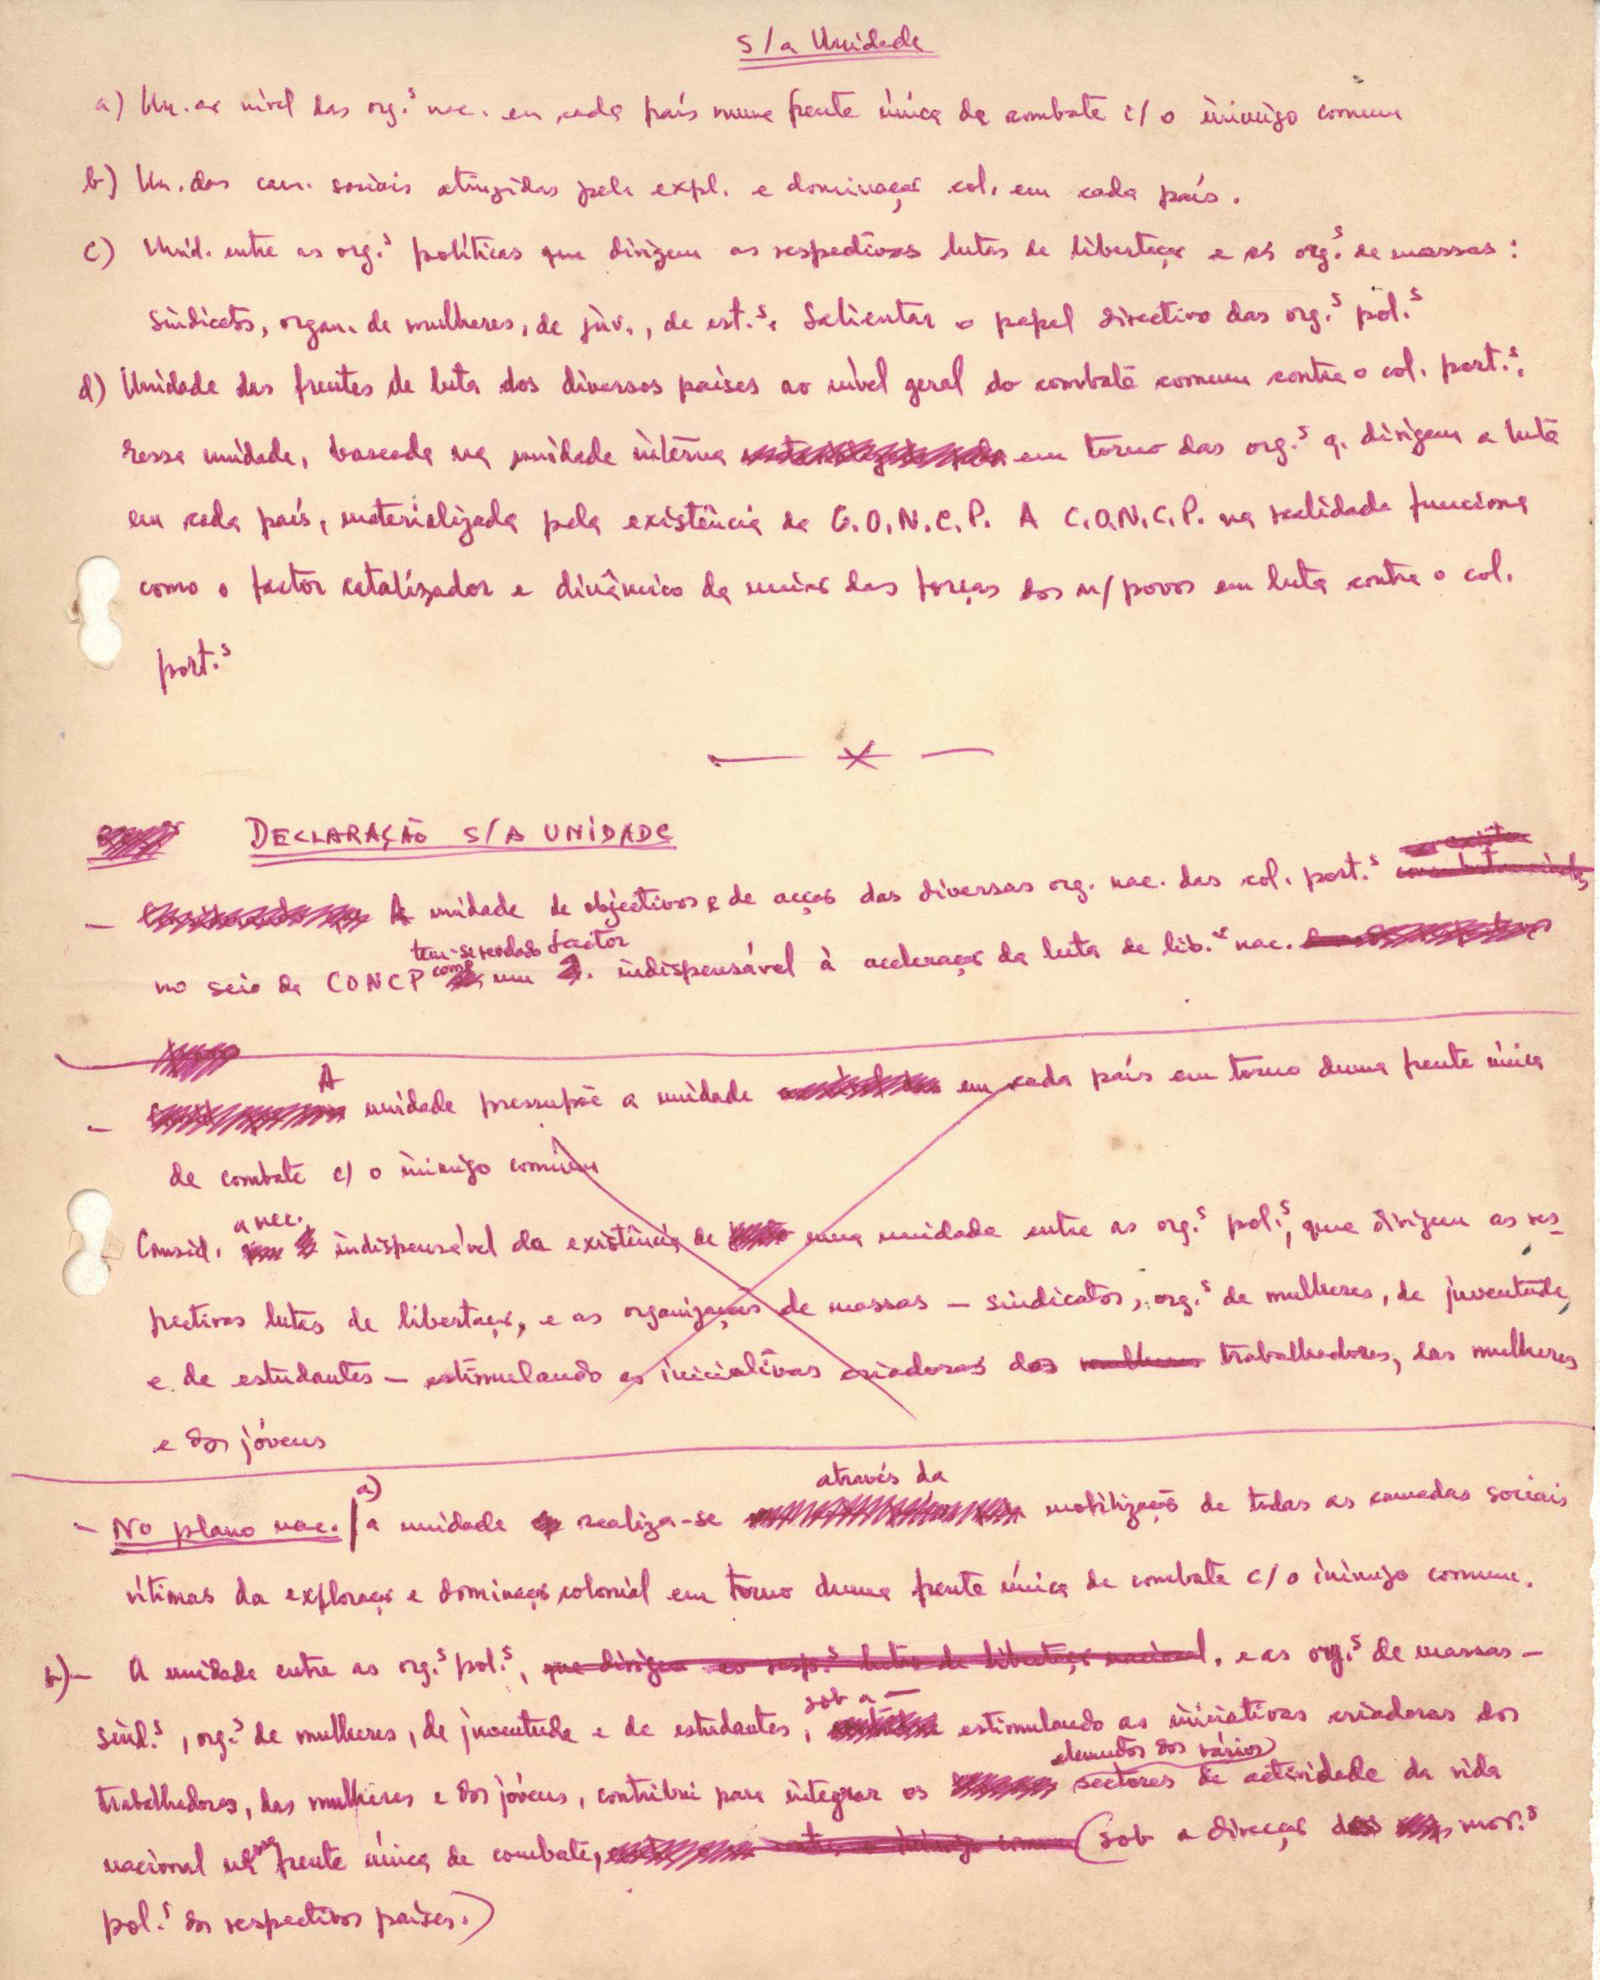 S/a Unidade
a) Un. ao nível das org.s nac. em cada país numa frente única de combate c/ o inimigo comum
b) Un. das cam. sociais atingidas pela expl. e dominação col. em cada país.
c) Unid. entre as org.s políticas que dirigem as respectivas lutas de libertação e as org.s de massas:
Sindicatos, organ. de mulheres, de juv., de est.s. Salientar o papel directivo das org.s pol.s
d) Unidade das frentes de luta dos diversos países ao nível geral do combate comum contra o col. port.s.
Essa unidade, baseada na unidade interna em torno das org.s q. dirigem a luta
em cada país, materializada pela existência da C.O.N.C.P. A C.O.N.C.P. na realidade funciona
como o factor catalizador e dinâmico da união das forças dos n/povos em luta contra o col.
port.s
DECLARAÇÃO S/A UNIDADE
- A unidade de objectivos e de acção das diversas org. nac. das col. port.s
tem-se revelado factor
no seio da CONCP como um indispensável à aceleração da luta de lib. nac.
A
- unidade pressupõe a unidade em cada país em torno duma frente única
de combate c/ o inimigo comum
a nec.
Consid. indispensável da existência de uma unidade entre as org.s pol.s, que dirigem as res-
pectivas lutas de libertação, e as organizações de massas - sindicatos, org.s de mulheres, de juventude,
e de estudantes - estimulando as iniciativas criadoras dos mulheres trabalhadores, das mulheres
e dos jóvens
a) através da
- No plano nac. | a unidade realiza-se mobilização de todas as camadas sociais
vítimas da exploração e dominação colonial em torno duma frente única de combate c/ o inimigo comum.
b) - A unidade entre as org.s pol.s, que dirigem as resp.s lutas de libertação nacional, e as org.s de massas -
sob a —
sind.s, org.s de mulheres, de juventude e de estudantes, estimulando as iniciativas criadoras dos
elementos dos vários
trabalhadores, das mulheres e dos jóvens, contribui para integrar os sectores de actividade da vida
nacional na frente única de combate, (sob a direcção dos mov.s
pol.s dos respectivos países.)